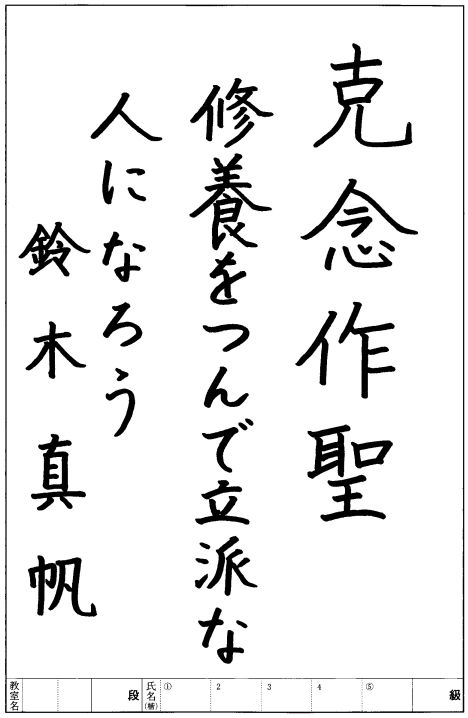 克念作聖
修養をつんで立派な
人になろう
鈴木真帆
級
⑤
4
3
2
①
氏名(楷)
段
教室名